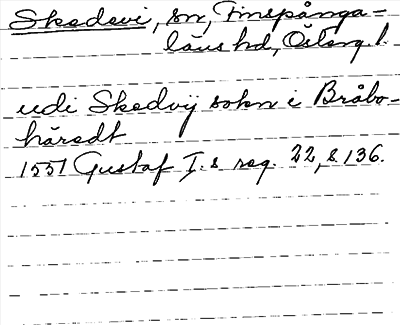 Skedevi, sn, Finspånga-
läns hd, Österg l.
udi Skedvij sokn i Bråbo-
häredt
1551 Gustaf I:s reg. 22, s 136.